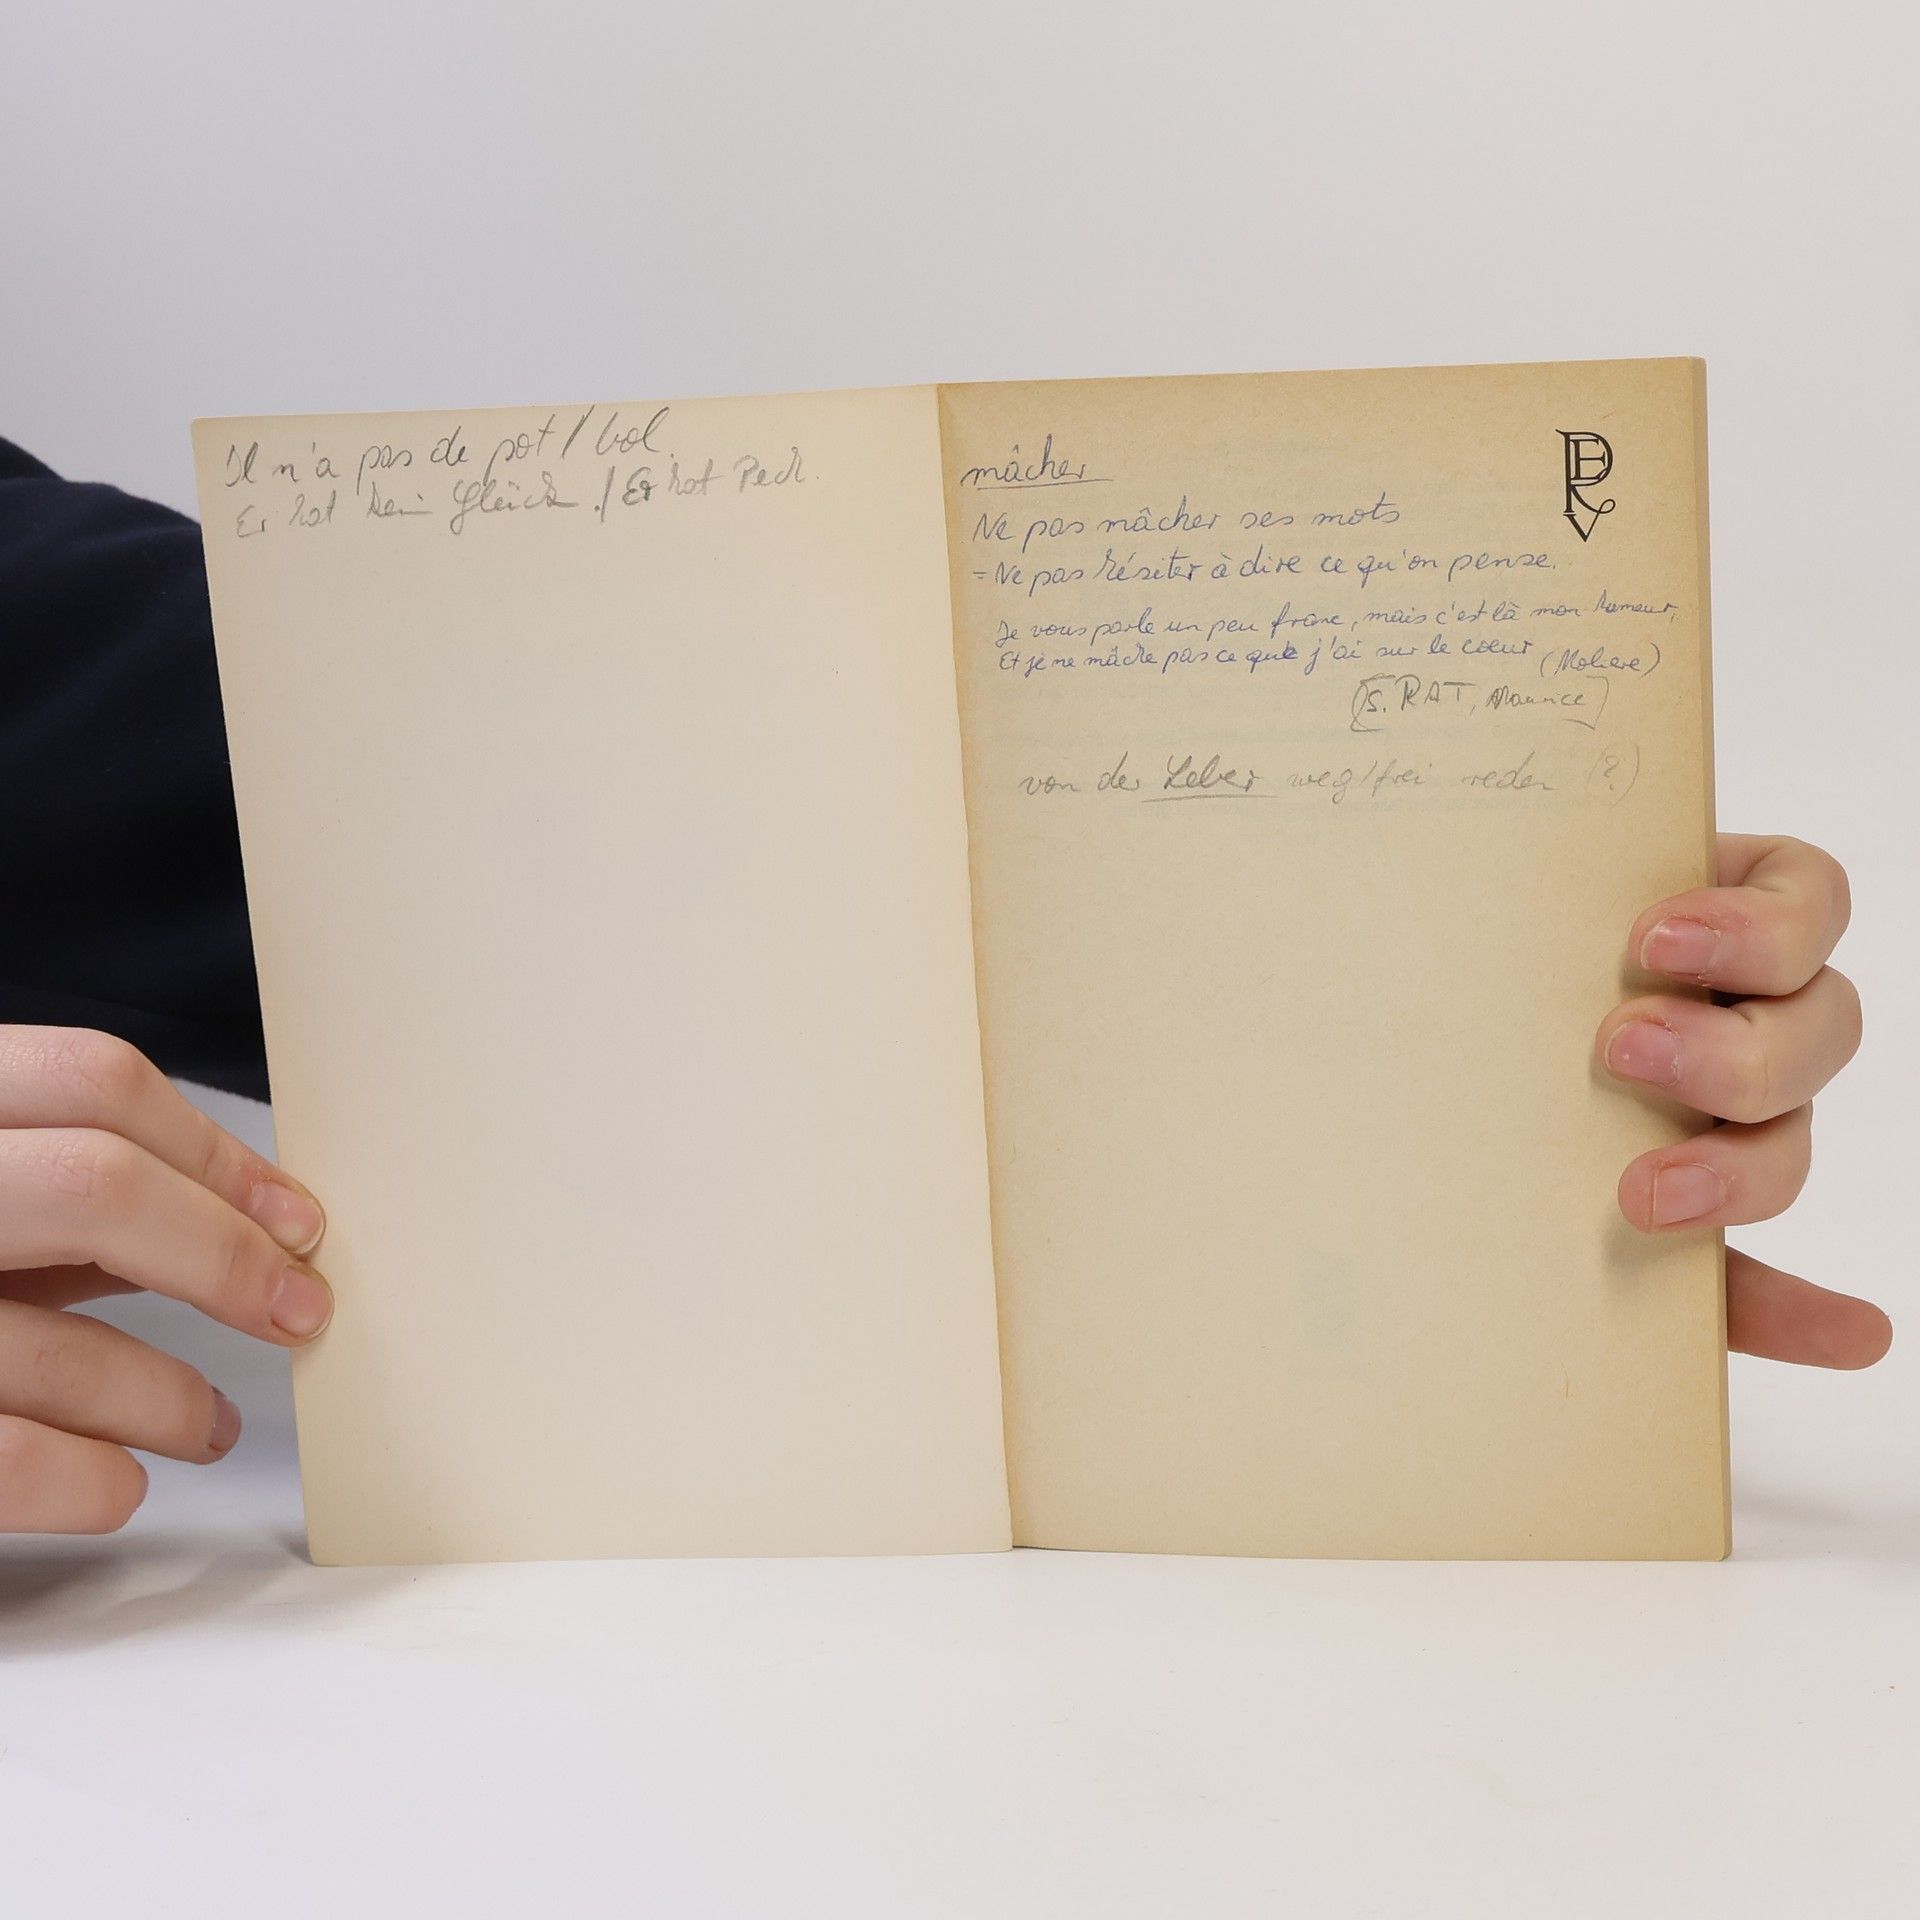 Il n'a pas de pot / bol.
Er hat kein Glück. / Er hat Pech.
mâcher
Ne pas mâcher ses mots
= Ne pas hésiter à dire ce qu'on pense.
Je vous parle un peu franc, mais c'est là mon humeur,
Et je ne mâche pas ce que j'ai sur le coeur (Moliere)
[S. RAT, Maurice]
von der Leber weg/frei reden (?)